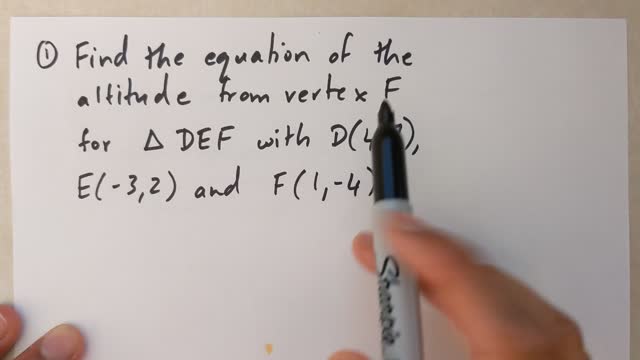 ① Find the equation of the
altitude from vertex F
for △ DEF with D(4,
E(-3,2) and F(1,-4)
Sharpie